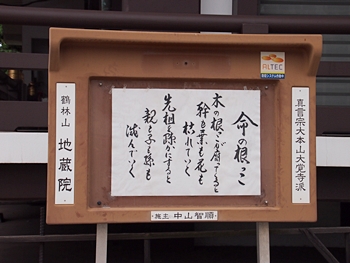 ALTEC
真言宗大本山大覚寺派
命の根っこ
木の根っこが腐ってると
幹も葉も花も
枯れていく
先祖を疎かにすると
親も子も孫も
滅んでいく
鶴林山 地蔵院
施主 中山智順